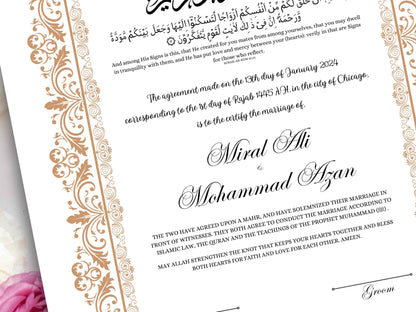 خَلَقَ لَكُم مِّنْ أَنفُسِكُمْ أَزْوَاجًا لِّتَسْكُنُوا إِلَيْهَا وَجَعَلَ بَيْنَكُم مَّوَدَّةً
وَرَحْمَةً إِنَّ فِي ذَٰلِكَ لَآيَاتٍ لِّقَوْمٍ يَتَفَكَّرُونَ
And among His Signs is this, that He created for you mates from among yourselves, that you may dwell
in tranquility with them, and He has put love and mercy between your (hearts): verily in that are Signs
for those who reflect.
The agreement made on the 13th day of January 2024
corresponding to the 1st day of Rajab 1445 A.H. in the city of Chicago,
is to the certify the marriage of,
Miral Ali
&
Mohammad Azan
THE TWO HAVE AGREED UPON A MAHR, AND HAVE SOLEMNIZED THEIR MARRIAGE IN
FRONT OF WITNESSES. THEY BOTH AGREE TO CONDUCT THE MARRIAGE ACCORDING TO
ISLAMIC LAW, THE QURAN AND THE TEACHINGS OF THE PROPHET MUHAMMAD .
MAY ALLAH STRENGTHEN THE KNOT THAT KEEPS YOUR HEARTS TOGETHER AND BLESS
BOTH HEARTS FOR FAITH AND LOVE FOR EACH OTHER. AMEEN.
Groom